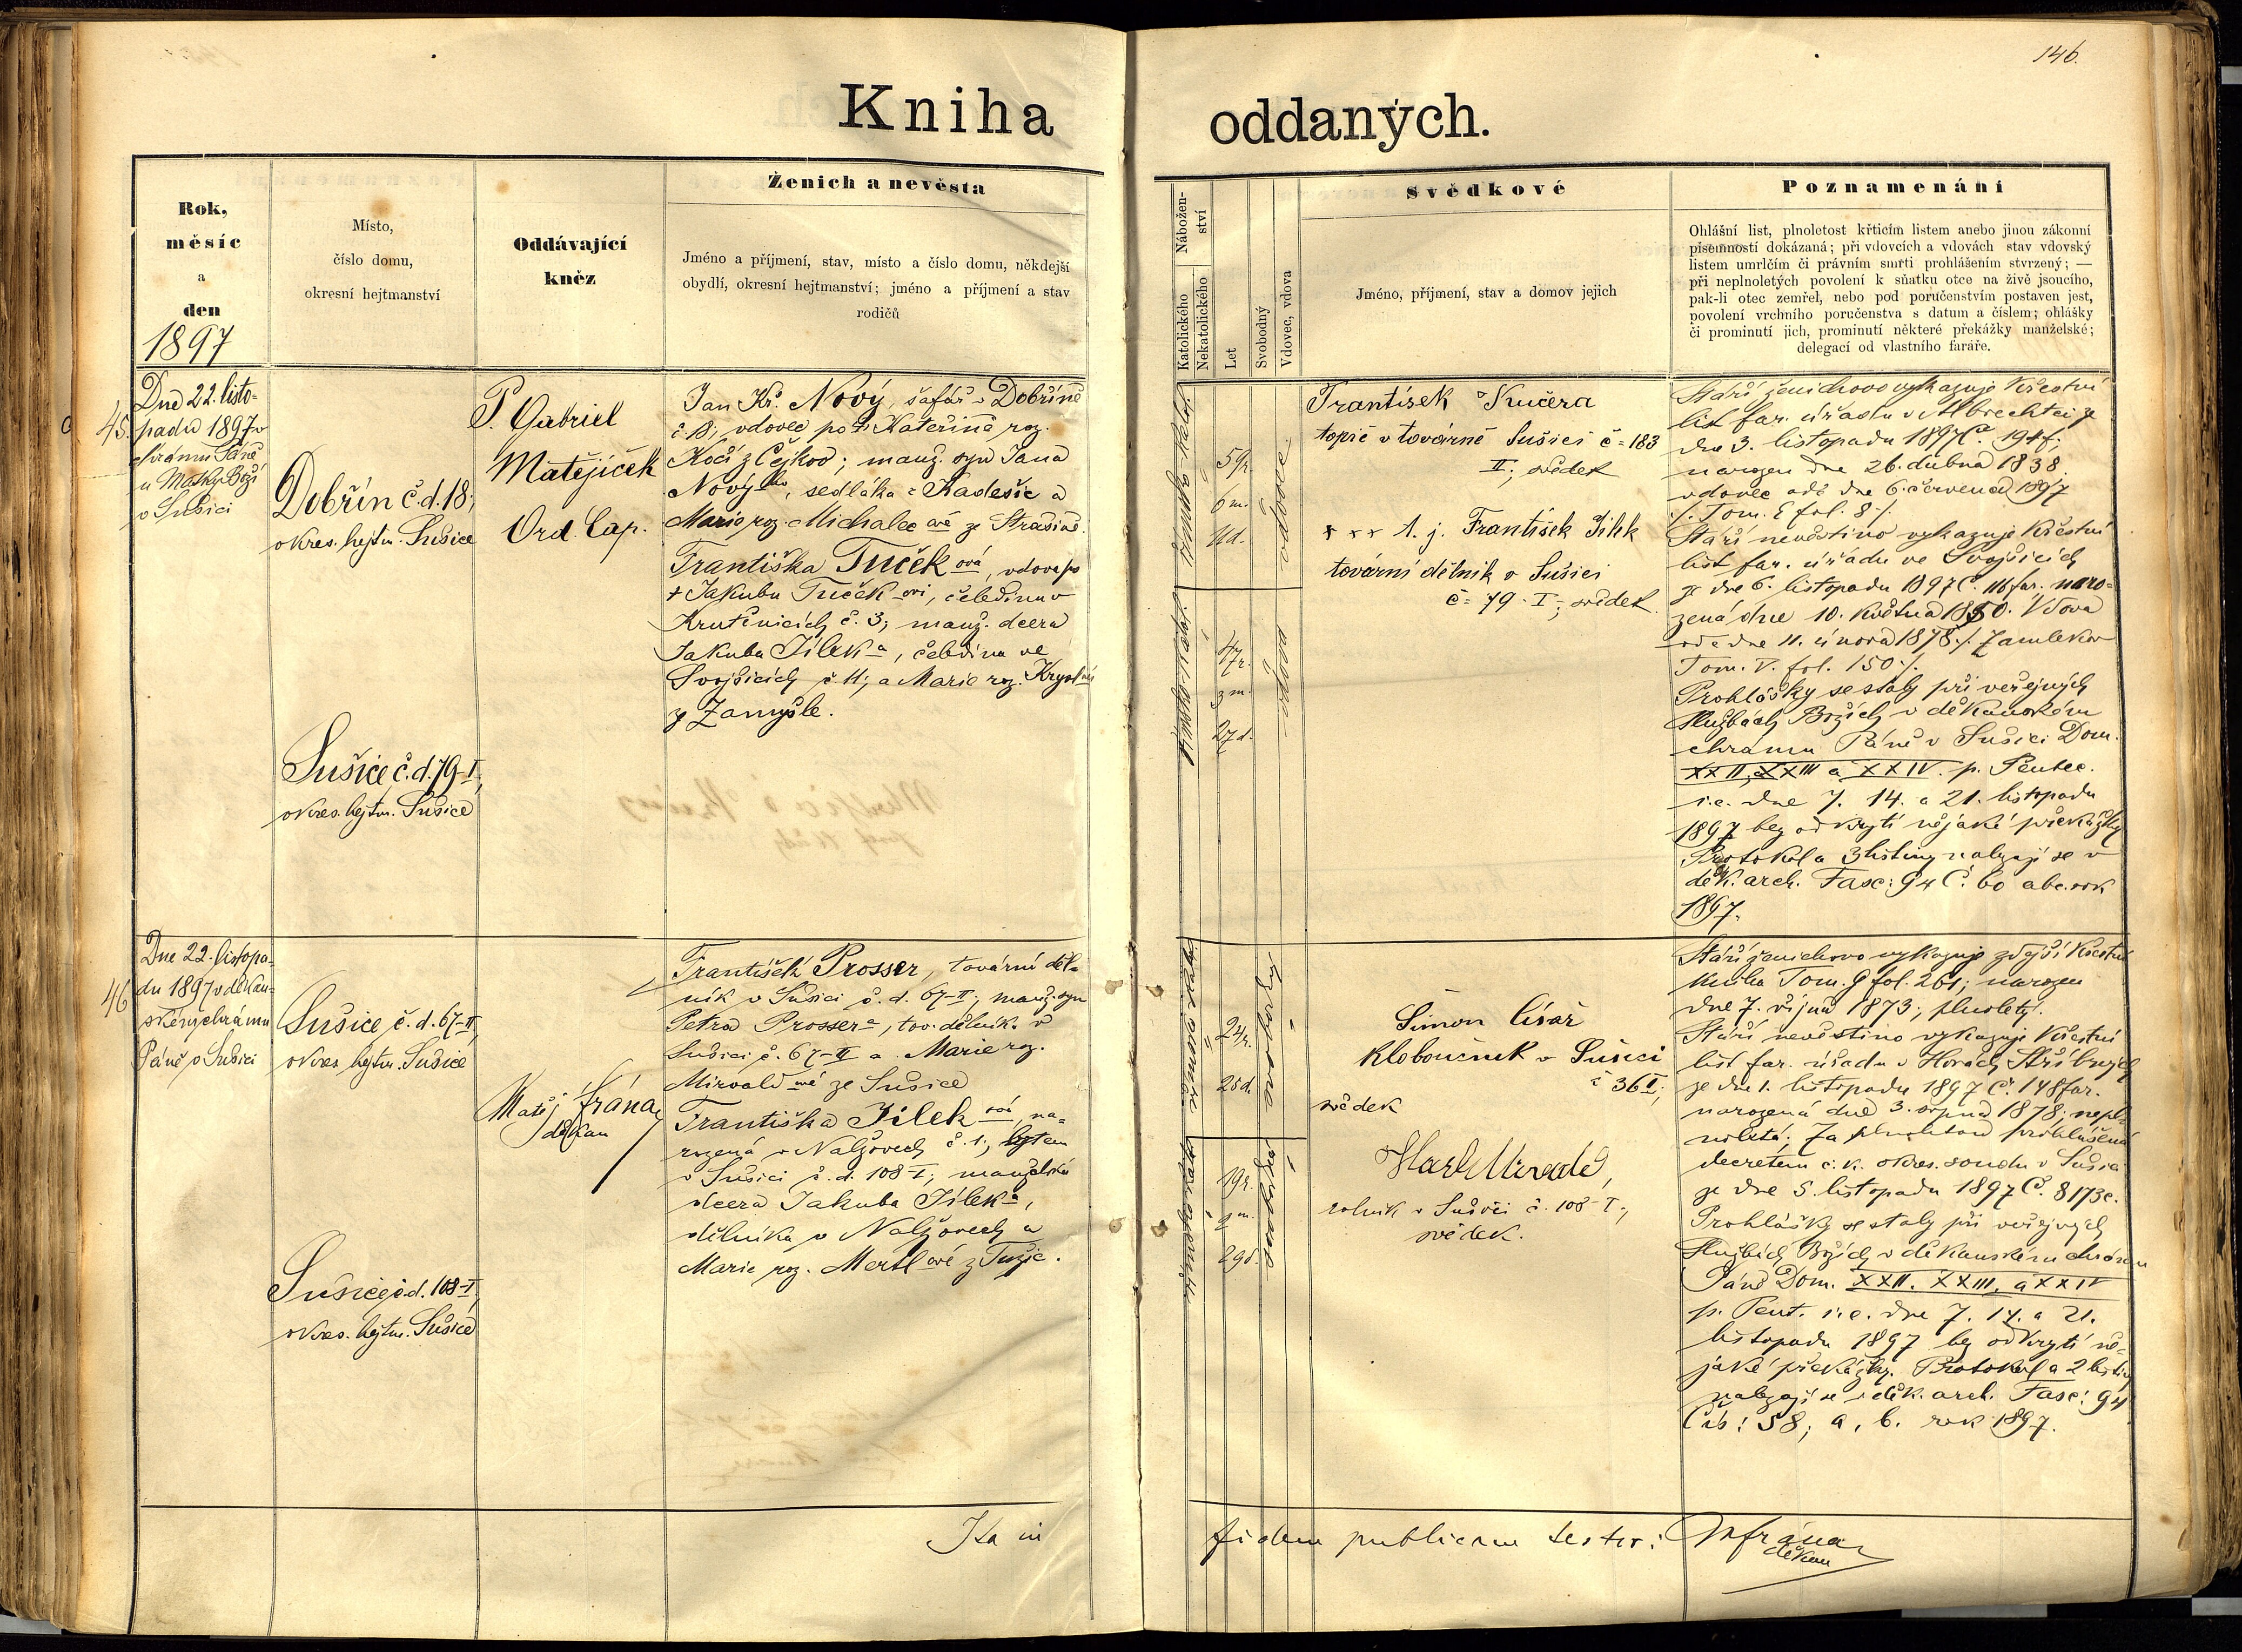 146.
Kniha oddaných.
Rok,
měsíc
a
den
1897
Místo,
číslo domu,
okresní hejtmanství
Oddávající
kněz
Ženich a nevěsta
Jméno a příjmení, stav, místo a číslo domu, někdejší
obydlí, okresní hejtmanství; jméno a příjmení a stav
rodičů
Nábožen-
ství
Katolického
Nekatolického
Let
Svobodný
Vdovec, vdova
Svědkové
Jméno, příjmení, stav a domov jejich
Poznamenání
Ohlášní list, plnoletost křticím listem anebo jinou zákonní
písemností dokázaná; při vdovcích a vdovách stav vdovský
listem umrlčím či právním smrti prohlášením stvrzený; —
při neplnoletých povolení k sňatku otce na živě jsoucího,
pak-li otec zemřel, nebo pod poručenstvím postaven jest,
povolení vrchního poručenstva s datum a číslem; ohlášky
či prominutí jich, prominutí některé překážky manželské;
delegací od vlastního faráře.
45.
Dne 22. listo-
padu 1897 v
chrámu Páně
u Matky Boží
v Sušici
Dobřín č.d. 18;
okres. hejtm. Sušice
Sušice č.d. 79-I,
okres. hejtm. Sušice
P. Gabriel
Matějíček
Ord. Cap.
Jan Kř. Nový, šafář v Dobříně
č. 18; vdovec po † Kateřině roz.
Kočí z Čejkov; manž. syn Jana
Nového, sedláka z Kadešic a
Marie roz. Michalcové ze Strašína.
Františka Tučeková, vdova po
† Jakubu Tučekovi, čeledínu v
Krutěnicích č. 3; manž. dcera
Jakuba Jíleka, čeledína ve
Svojšicích č. 11; a Marie roz.
z Zamyšle.
6 m.
47 r.
3 m.
27 d.
vdovec
vdova
František Kučera
topič v továrně Sušici č = 183
II; svědek
+ + + 1. j. František Jílek
tovární dělník v Sušici
č = 79 - I; svědek.
Stáří ženichovo vykazuje křestní
list far. úřadu v Albrechtci z
dne 3. listopadu 1897 Č. 194 f;
narozen dne 26. dubna 1838.
vdovec od dne 6. července 1897
/. Tom. E fol. 8 ./.
Stáří nevěstino vykazuje křestní
list far. úřadu ve Svojšicích
z dne 6. listopadu 1897 Č. 116 far. naro-
zená dne 10. května 1850. Vdova
ode dne 11. února 1878 /.
Tom. V. fol. 150 ./.
Prohlášky se staly při veřejných
službách Božích v děkanském
chrámu Páně v Sušici Dom.
XXII, XXIII a XXIV. p. Pentec.
i.e. dne 7. 14. a 21. listopadu
1897 bez odkrytí nějaké překážky
Protokol a 3 listiny nalezají se v
děk. arch. Fasc: 94 Č. 60 abc. rok
1897.
46
Dne 22. listopa-
du 1897 v děkan-
ském chrámu
Páně v Sušici
Sušice č. d. 67-II,
okres. hejtm. Sušice
Sušice č.d. 108-I,
okres. hejtm. Sušice
Matěj Frána,
děkan
František Prosser, tovární děl-
ník v Sušici č. d. 67-II; manž. syn
Petra Prossera, tov. dělníka v
Sušici č. 67-II a Marie roz.
Mirvaldové ze Sušice
Františka Jíleková, na-
rozená v Nalžovech č. 1; bytem
v Sušici č. d. 108-I; manželská
dcera Jakuba Jíleka,
dělníka v Nalžovech a
Marie roz. Mertlové z Tužic.
24 r.
19 r.
svobodná
Šimon Císař
Kloboučník v Sušici
č 36 I;
svědek
Karl
rolník v Sušici č. 108 - I;
svědek.
Stáří ženichovo vykazuje zdejší křestní
kniha Tom. 9 fol. 261; narozen
dne 7. října 1873; plnoletý.
Stáří nevěstino vykazuje křestní
list far. úřadu v Horách Stříbrných
ze dne 1. listopadu 1897 Č. 148 far.
narozená dne 3. srpna 1878; nepl-
noletá; Za plnoletou prohlášena
decretem c. k. okres. soudu v Sušici
ze dne 5. listopadu 1897 Č. 8173 c.
Prohlášky se staly při veřejných
službách Božích v děkanském chrámu
Páně Dom. XXII. XXIII. a XXIV
p. Pent. i.e. dne 7. 14. a 21.
listopadu 1897 bez odkrytí ně-
jaké překážky. Protokol a 2 listiny
nalezají se v děk. arch. Fasc: 94
Čís: 58; a, b. rok 1897.
Ita in fidem publicam testor: MFrána
děkan